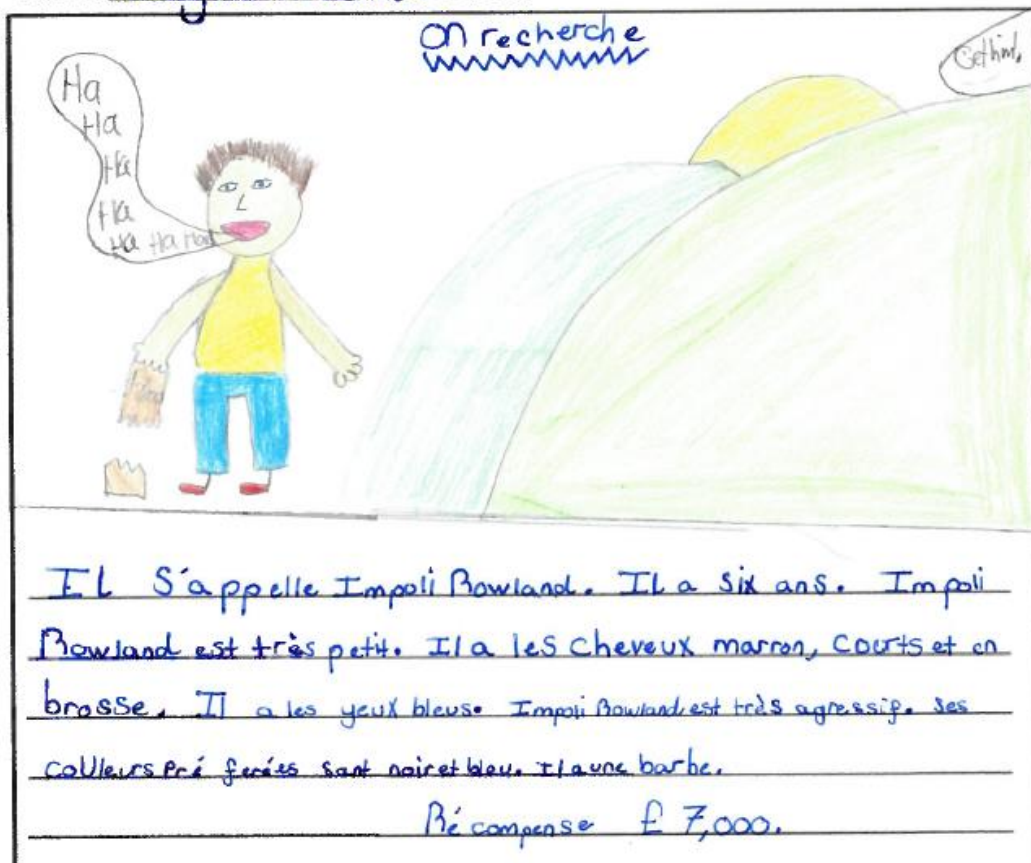 On recherche
Get him.
Ha
Ha
Ha
Ha
Ha Ha
IL S'appelle Impoli Rowland. IL a Six ans. Impoli
Rowland est très petit. Il a les cheveux marron, courts et en
brosse. Il a les yeux bleus. Impoli Rowland est très agressif. Ses
coUleurs Pré ferées sont noir et bleu. Il a une barbe.
Récompense £ 7,000.